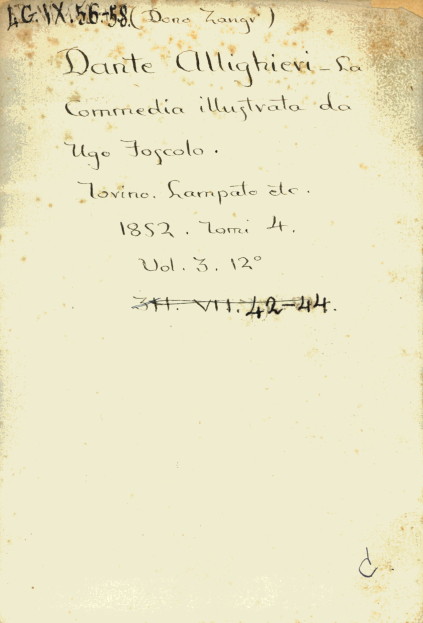 LG.IX.56-58.(Dono Zangr)
Dante Allighieri - La
Commedia illustrata da
Ugo Foscolo.
Torino. Lampato etc.
1852. Tomi 4.
Vol. 3. 12°
VII. 42-44.
C